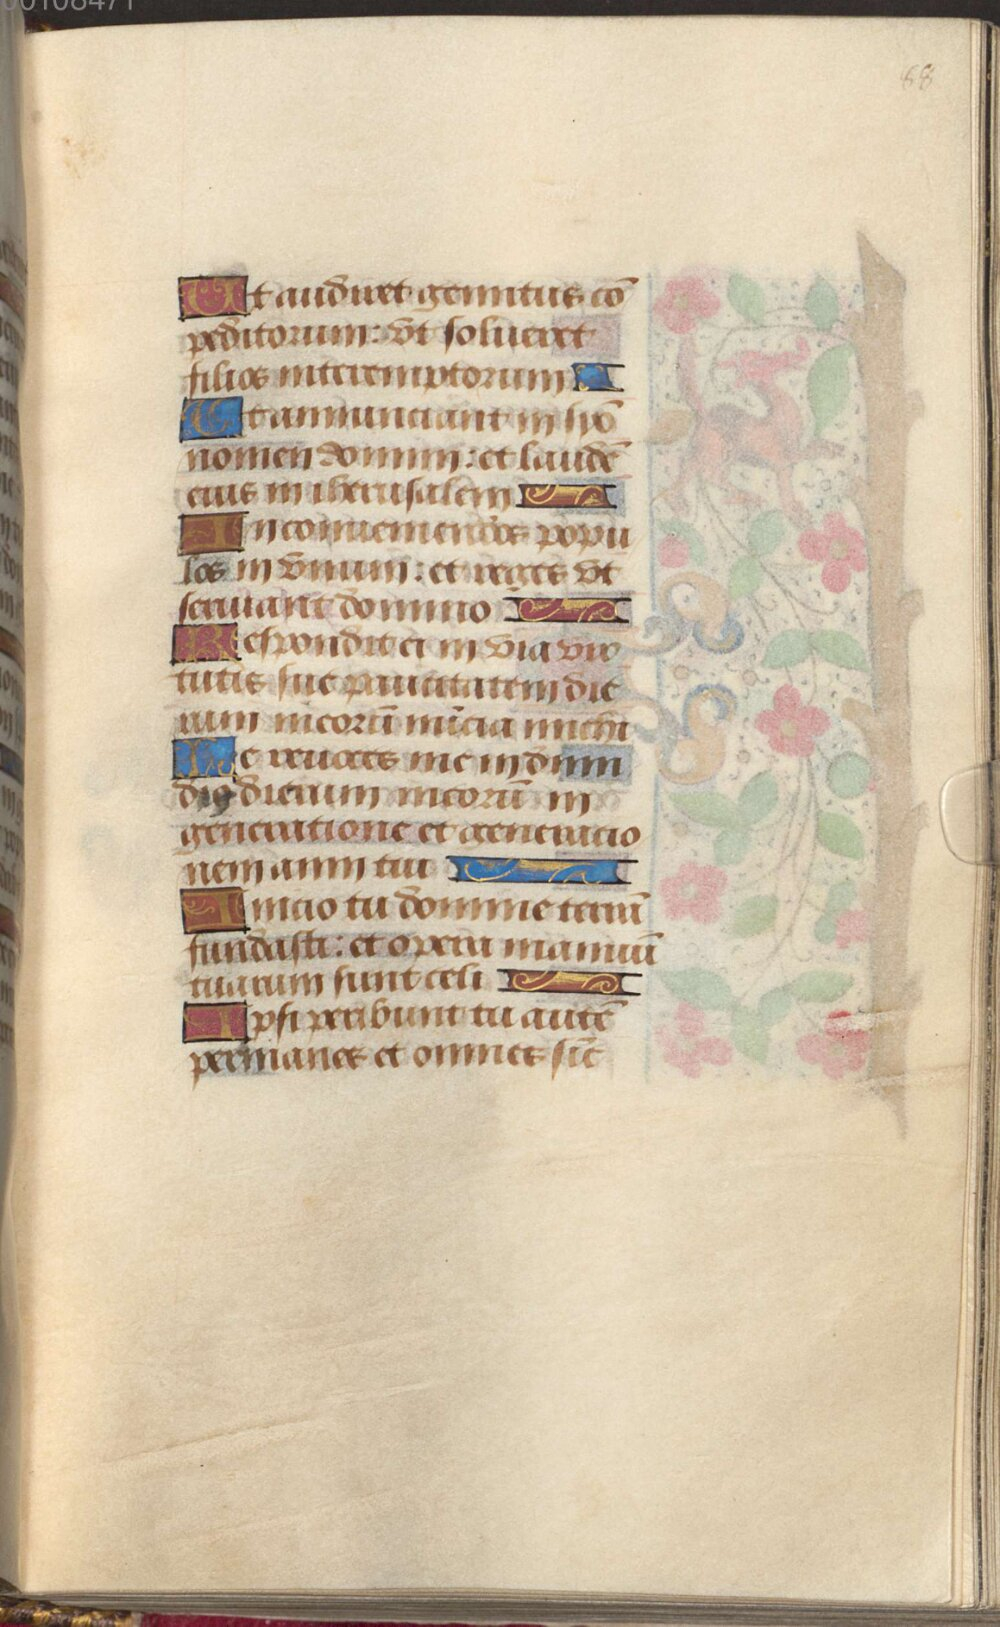 00108471
68
Ut audiret gemitus cō
peditorum: vt solueret
filios interemptorum
Et annunciant in syō
nomen domini: et laudē
eius in iherusalem
In conueniendos popu
los in vnum: et reges vt
seruiant domino
Respondit ei in via vir
tutis sue paucitatem die
rum meorū nūcia michi
Ne reuoces me in dimi
dio dierum meorū in
generatione et generacio
nem anni tui
Inicio tu domine terrā
fundasti: et opera manuū
tuarum sunt celi
Ipsi peribunt tu autē
permanes et omnes sic̄